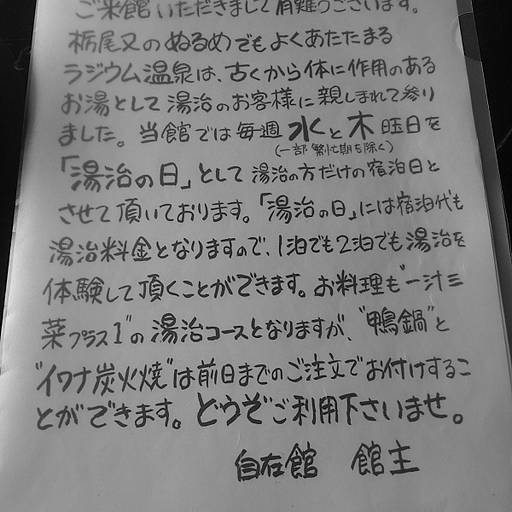 ご来館いただきまして有難うございます。
栃尾又のぬるめでもよくあたたまる
ラジウム温泉は、古くから体に作用のある
お湯として湯治のお客様に親しまれて参り
ました。当館では毎週水と木曜日を
(一部繁忙期を除く)
「湯治の日」として湯治の方だけの宿泊日と
させて頂いております。「湯治の日」には宿泊代も
湯治料金となりますので、1泊でも2泊でも湯治を
体験して頂くことができます。お料理も"一汁三
菜プラス1"の湯治コースとなりますが、"鴨鍋"と
"イワナ炭火焼"は前日までのご注文でお付けするこ
とができます。どうぞご利用下さいませ。
自在館 館主